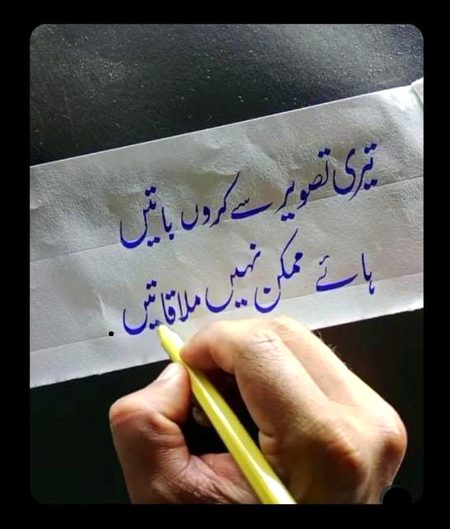 تیری تصویر سے کروں باتیں
ہائے ممکن نہیں ملاقاتیں